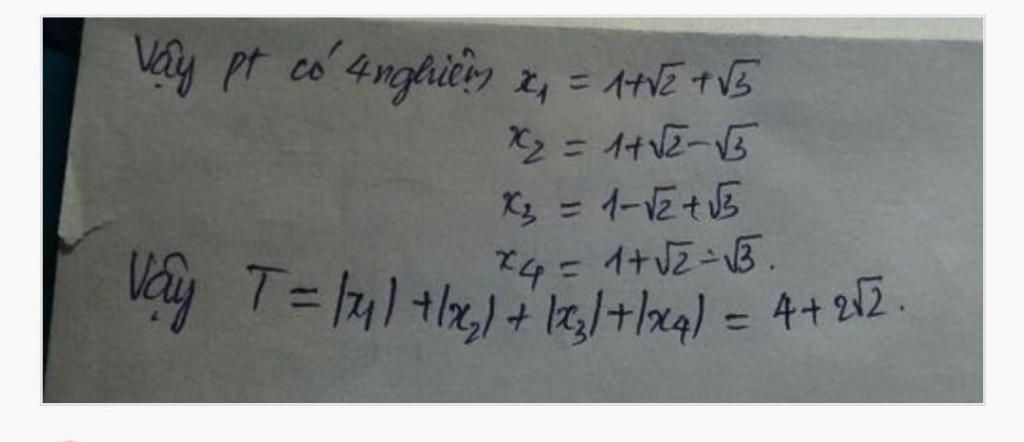 Vậy pt có 4 nghiệm x₁ = 1+√2 +√3
x₂ = 1+√2-√3
x₃ = 1-√2+√3
x₄ = 1+√2-√3.
Vậy T = |x₁| +|x₂| + |x₃|+|x₄| = 4+2√2.